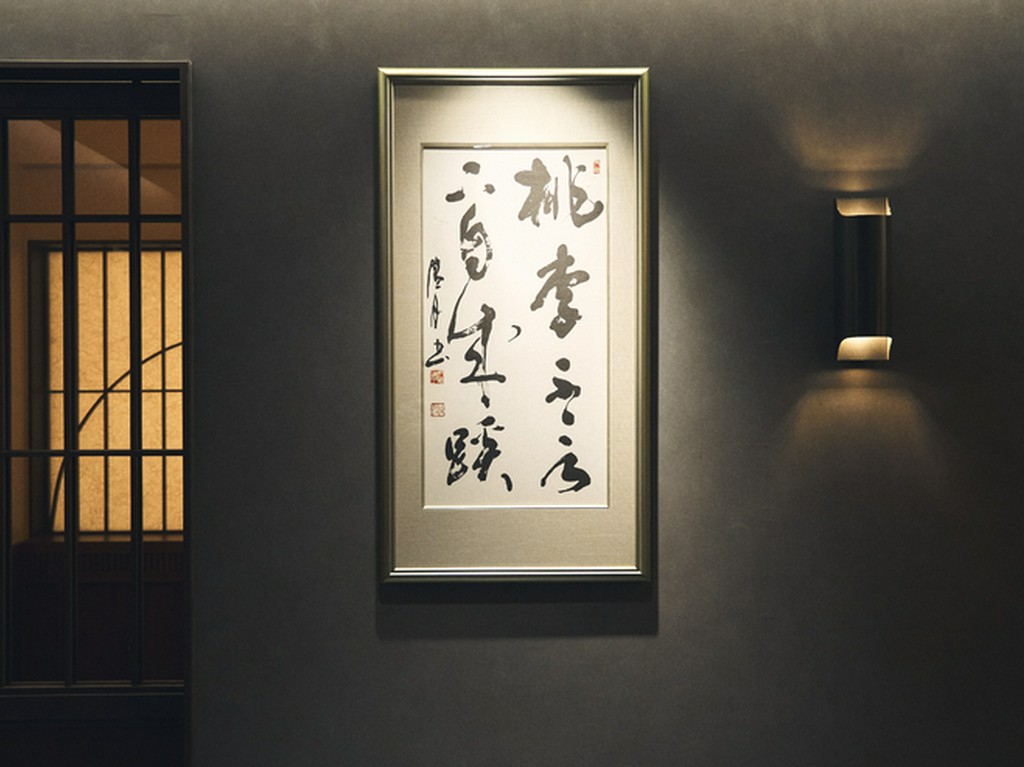 桃李不言
下自成蹊
月书